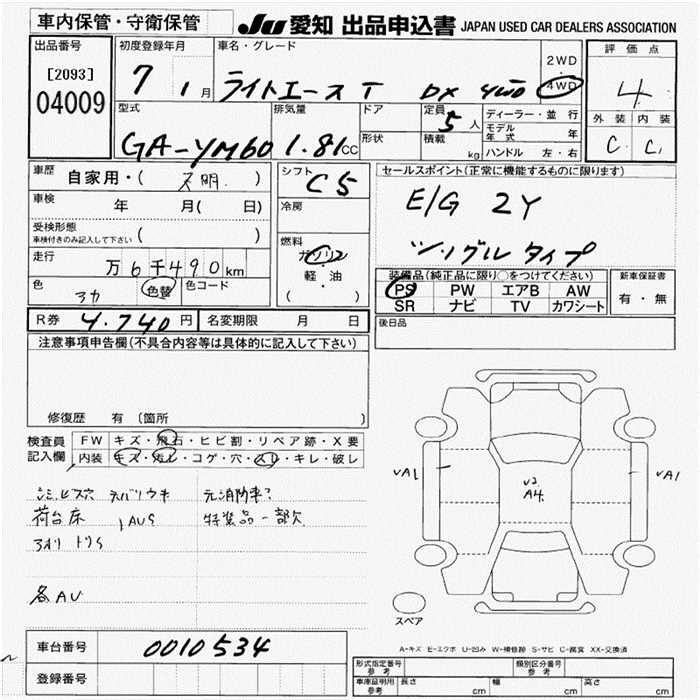 車内保管・守衛保管
JU 愛知 出品申込書 JAPAN USED CAR DEALERS ASSOCIATION
出品番号
[2093]
04009
初度登録年月
7 1月
車名・グレード
ライトエース T DX 4WD
2WD
・
4WD
評価点
4
外装 内装
C C
型式
GA-YM60
排気量
1.81cc
ドア
形状
定員
5人
積載
kg
ディーラー・並行
モデル年式 年
ハンドル 左・右
車歴
自家用・( 不明 )
車検
年 月( 日)
受検形態
車検付きのみ記入して下さい ( )
走行
万6千490km
色
アカ
色替
色コード
シフト
C5
冷房
燃料
ガソリン
軽・油
( ・ )
セールスポイント(正常に機能するものに限ります)
E/G 2Y
シングルタイプ
装備品(純正品に限り○をつけてください)
PS PW エアB AW
SR ナビ TV カワシート
新車保証書
有・無
後日品
R券 4.740円 名変期限 月 日
注意事項申告欄(不具合内容等は具体的に記入して下さい)
修復歴 有〔箇所 〕
検査員
記入欄
FW キズ・飛石・ヒビ割・リペア跡・X要
内装 キズ・汚レ・コゲ・穴・スレ・キレ・破レ
ビス穴
荷台床
元消防車?
特装品一部欠
アオリ
各AU
VA1
V2
A4
VA1
スペア
A-キズ E-エクボ U-凹み W-補修跡 S-サビ C-腐食 XX-交換済
車台番号 0010534
登録番号
形式指定番号
参考
類別区分番号
参考
車庫証明用
参考
長さ cm 幅 cm 高さ cm